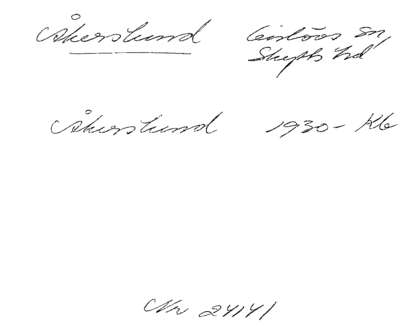 Åkerslund Gislövs sn,
Skytts hd
Åkerslund 1930- Kb
Nr 24141